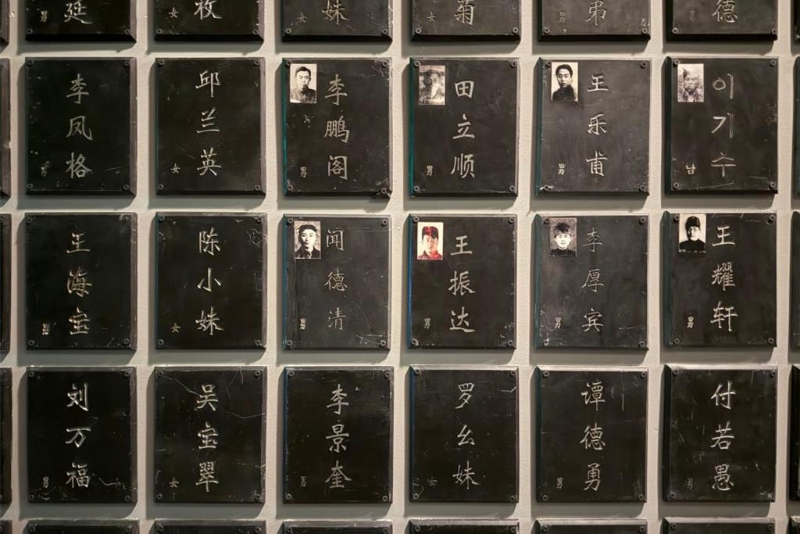 延
男
枚
女
妹
菊
女
弟
男
德
男
李凤格
男
邱兰英
女
李鹏阁
男
田立顺
男
王乐甫
男
이기수
남
王海宝
男
陈小妹
女
闻德清
男
王振达
男
李厚宾
男
王耀轩
男
刘万福
男
吴宝翠
女
李景奎
男
罗幺妹
女
谭德勇
男
付若愚
男